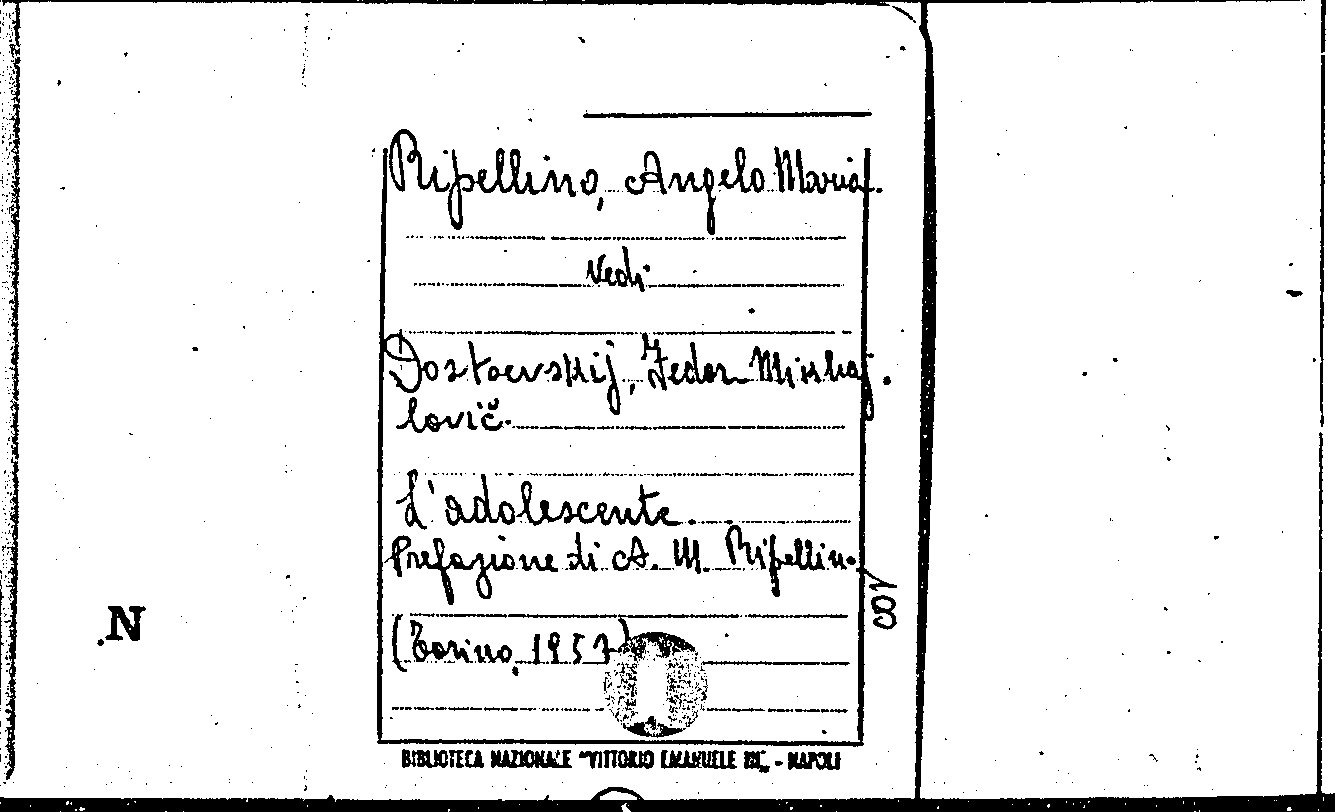 Ripellino, Angelo Maria.
Vedi
Dostoevskij, Fedor Mihaj
lovič.
L'adolescente.
Prefazione di A. M. Ripellino
(Torino, 1957)
N
BIBLIOTECA NAZIONALE "VITTORIO EMANUELE III" - NAPOLI